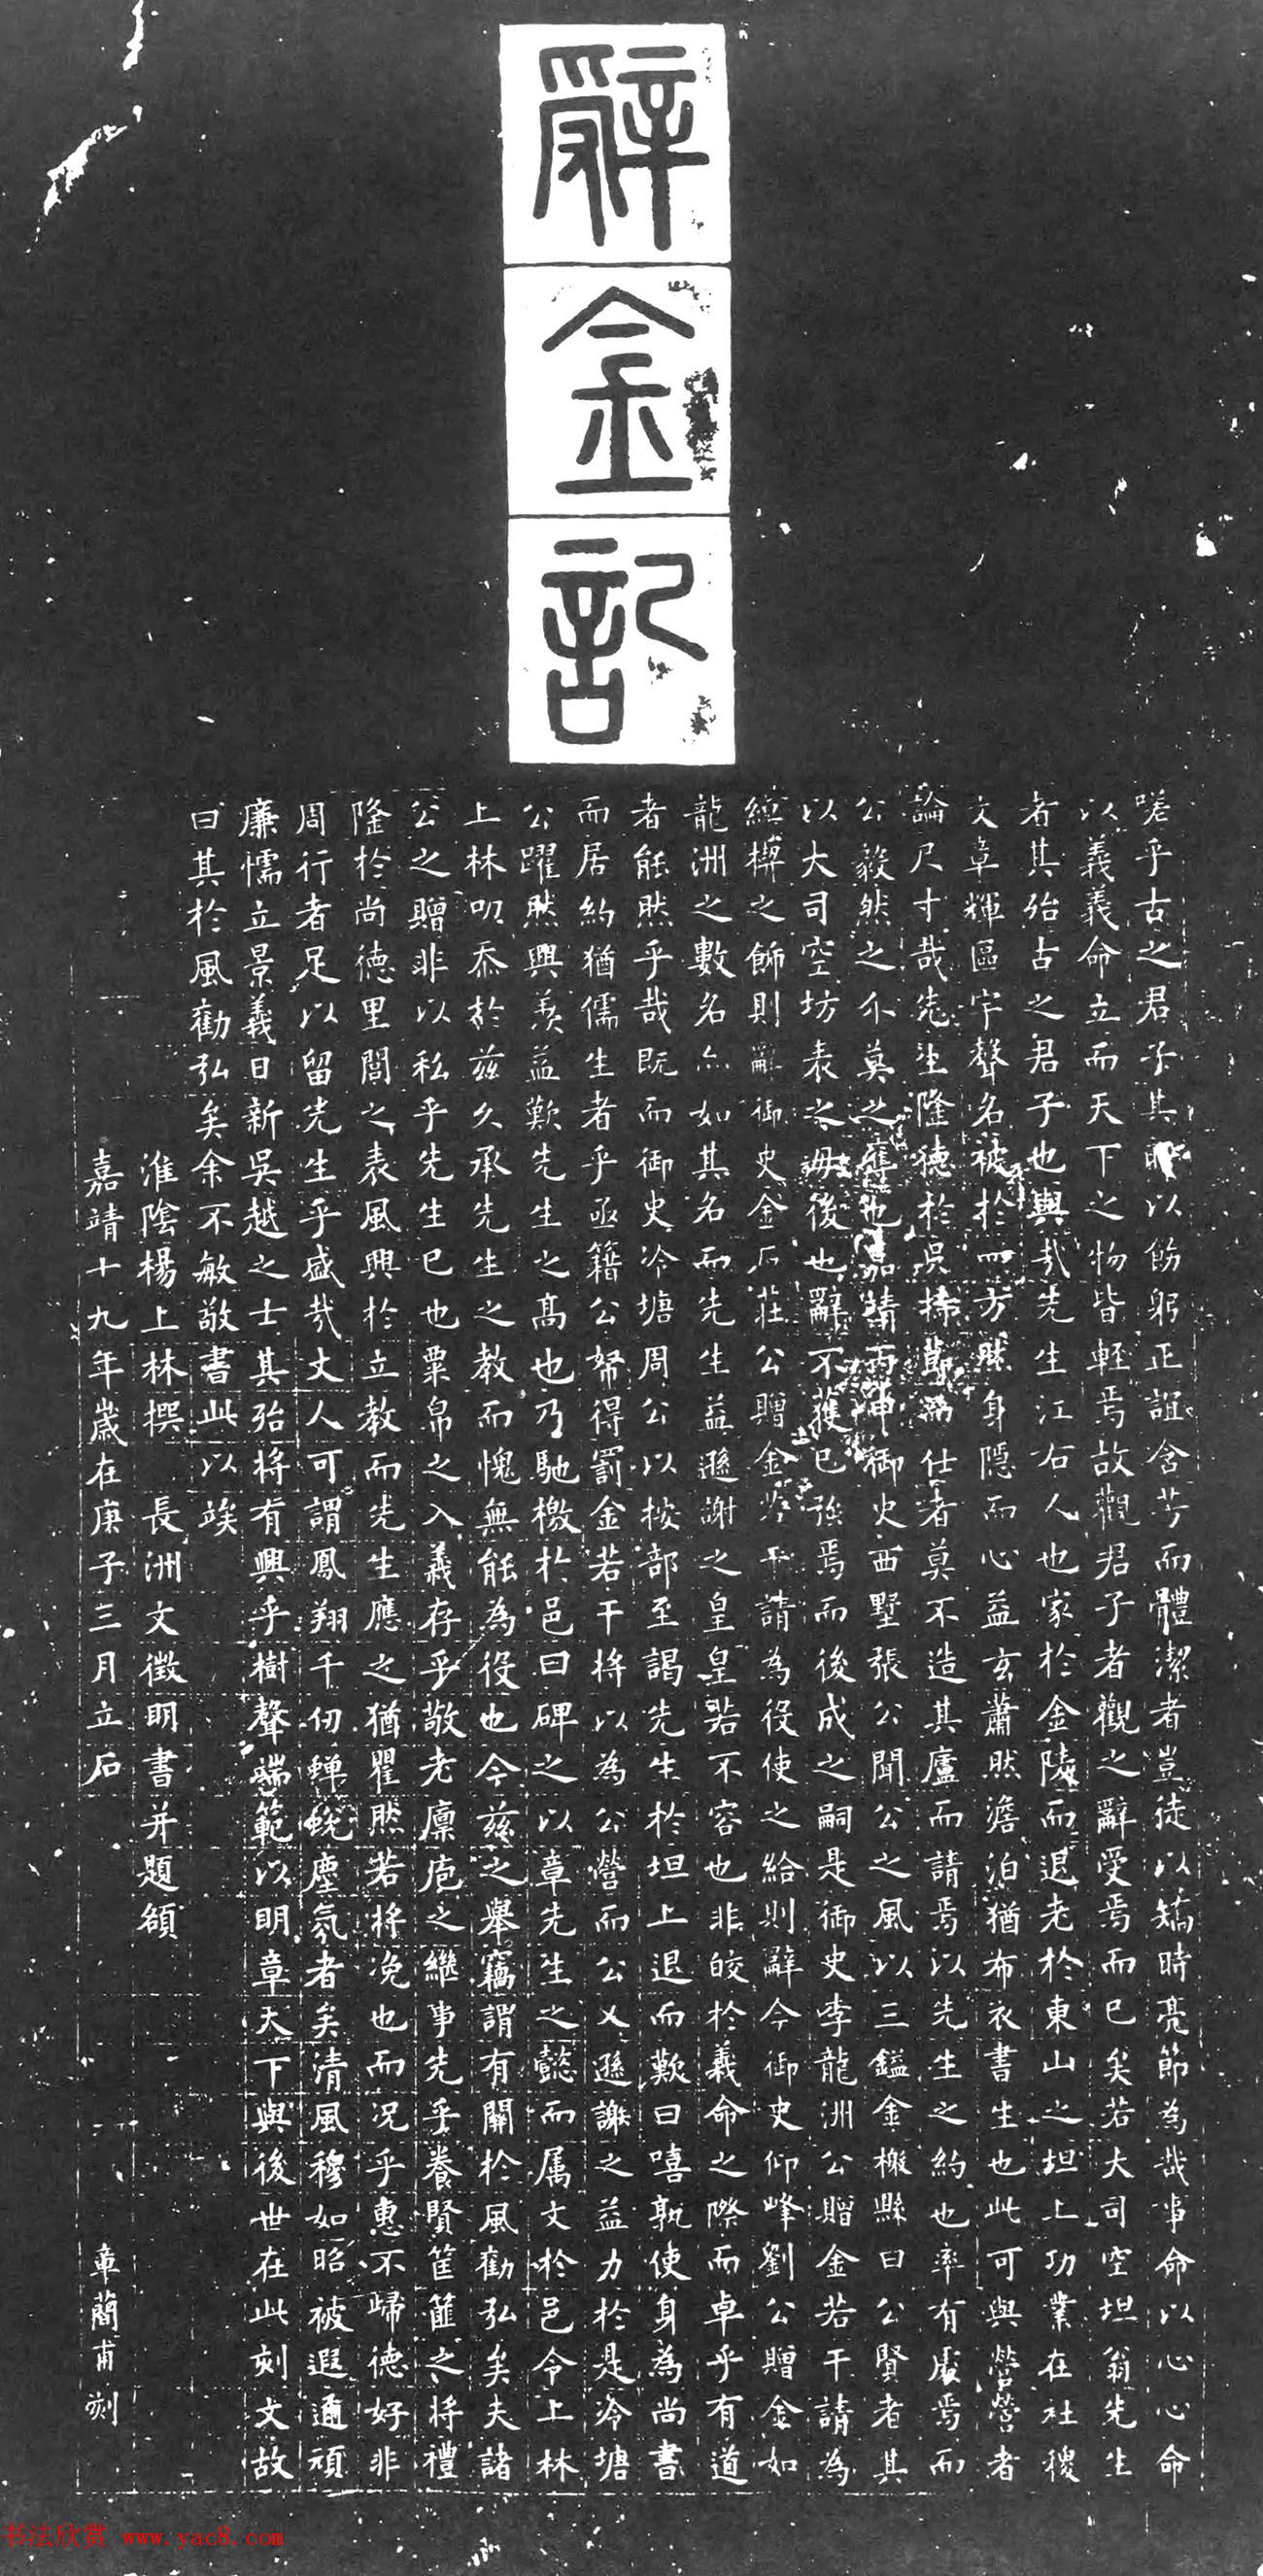 辭金記
嗟乎古之君子其以飭躬正誼含芳而體潔者豈徒以矯時亮節為哉事命以心心命
以義義命立而天下之物皆輕焉故觀君子者觀之辭受焉而已矣若大司空坦翁先生
者其殆古之君子也與哉先生江右人也家於金陵而退老於東山之坦上功業在社稷
文章輝區宇聲名被於四方然身隱而心益玄蕭然澹泊猶布衣書生也此可與營營者
論尺寸哉先生隆德於吳掃仕者莫不造其廬而請焉以先生之約也率有處焉而
公毅然之不莫之奪也嘉靖丙申御史西墅張公聞公之風以三鎰金檄縣曰公賢者其
以大司空坊表之毋後也辭不獲已強焉而後成之嗣是御史李龍洲公贈金若干請為
綽楔之飾則辭御史金石莊公贈金若干請為役使之給則辭今御史仰峰劉公贈金如
龍洲之數名亦如其名而先生益遜謝之皇皇若不容也非皎於義命之際而卓乎有道
者能然乎哉既而御史泠塘周公以按部至謁先生於坦上退而歎曰嘻孰使身為尚書
而居約猶儒生者乎亟籍公帑得罰金若干將以為公營而公又遜謝之益力於是泠塘
公躍然興羨益歎先生之高也乃馳檄於邑曰碑之以章先生之懿而属文於邑令上林
上林叨忝於兹久承先生之教而愧無能為役也今兹之舉竊謂有關於風勸弘矣夫諸
公之贈非以私乎先生已也粟帛之入義存乎敬老廩庖之繼事先乎養賢筐篚之將禮
隆於尚德里閭之表風興於立教而先生應之猶瞿然若將浼也而况乎惠不歸德好非
周行者足以留先生乎盛哉大人可謂鳳翔千仞蟬蛻塵氛者矣清風穆如昭被遐邇頑
廉懦立景義日新吳越之士其殆將有興乎樹聲端範以明章天下與後世在此刻文故
曰其於風勸弘矣余不敏敬書此以竢
淮陰楊上林撰 長洲文徵明書并題額
嘉靖十九年歲在庚子三月立石 章簡甫刻
书法欣赏 www.yac8.com